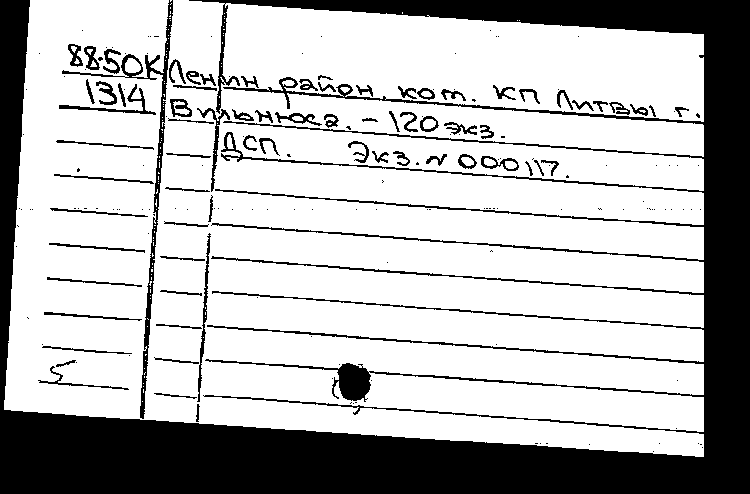 88-50К Ленин. район. ком. КП Литвы г.
1314 Вильнюса. - 120 экз.
ДСП. Экз. N 000117.
5